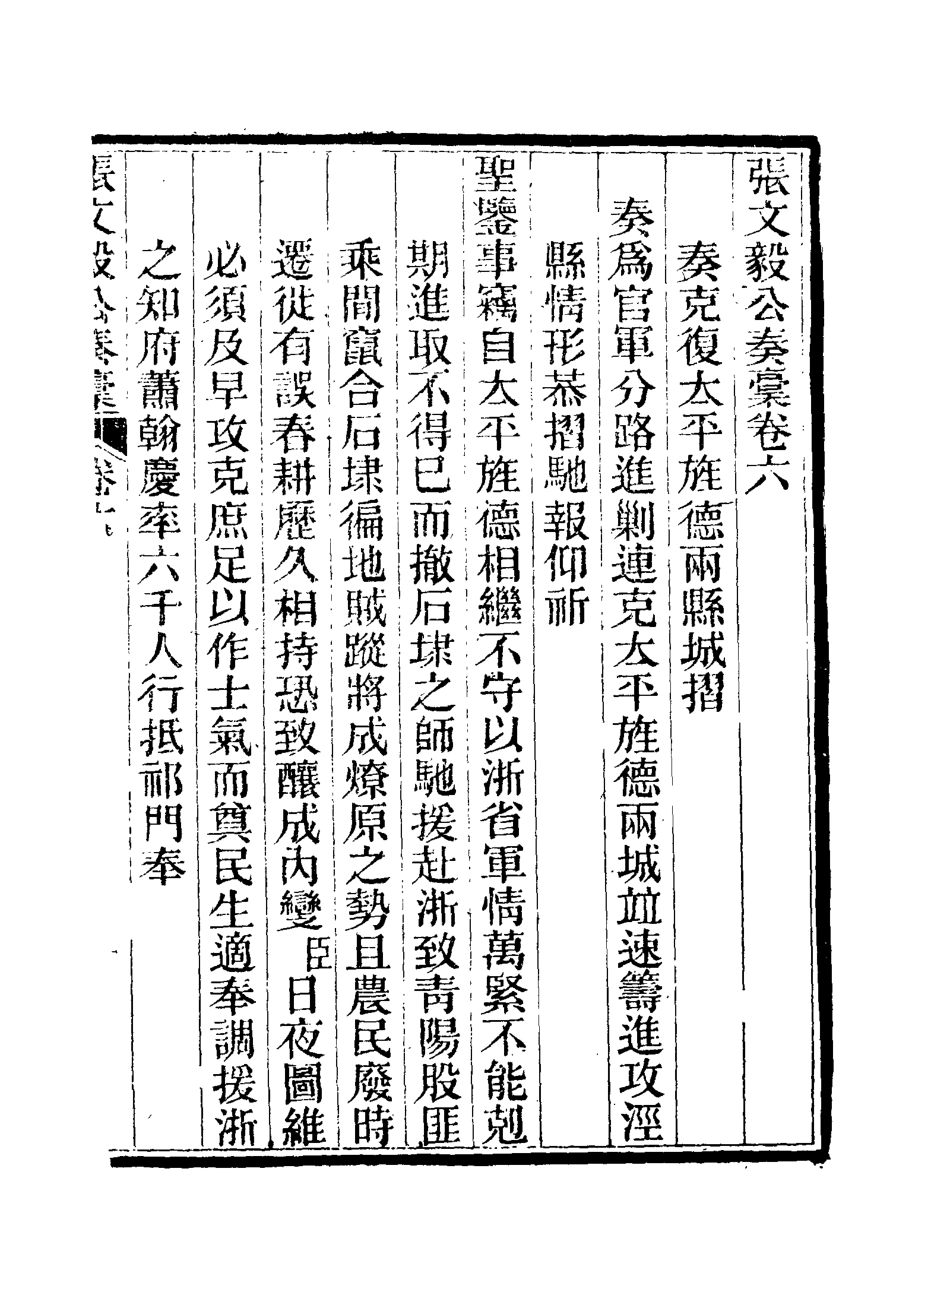 張文毅公奏稾卷六
奏克復太平旌德兩縣城摺
奏爲官軍分路進剿連克太平旌德兩城竝速籌進攻涇
縣情形恭摺馳報仰祈
聖鑒事竊自太平旌德相繼不守以浙省軍情萬緊不能剋
期進取不得已而撤石埭之師馳援赴浙致青陽股匪
乘間竄合石埭徧地賊蹤將成燎原之勢且農民廢時
遷徙有誤春耕歷久相持恐致釀成內變臣日夜圖維
必須及早攻克庶足以作士氣而奠民生適奉調援浙
之知府蕭翰慶率六千人行抵祁門奉
張文毅公奏稾 卷六